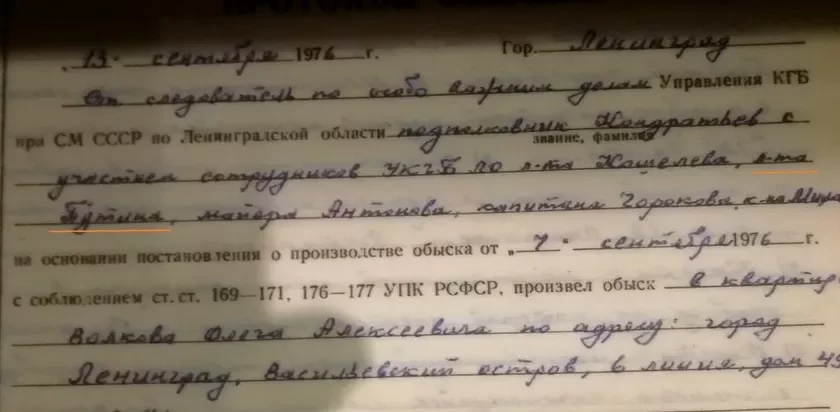 ПРОТОКОЛ
„13“ сентября 1976 г. Гор. Ленинград
Ст. следователь по особо важным делам Управления КГБ
при СМ СССР по Ленинградской области подполковник Кондратьев с
звание, фамилия
участием сотрудников УКГБ ЛО л-та Кошелева, л-та
майора Антонова, капитана к-на
на основании постановления о производстве обыска от „7“ сентября 1976 г.
с соблюдением ст. ст. 169—171, 176—177 УПК РСФСР, произвел обыск в квартир
Волкова Олега Алексеевича по адресу: город
Ленинград, Васильевский остров, линия, дом